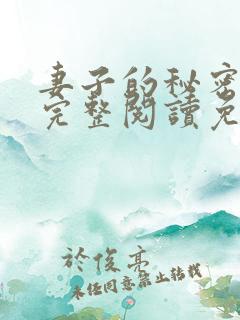 妻子的秘密
完整閱讀免
於俊亮
未经同意禁止转载